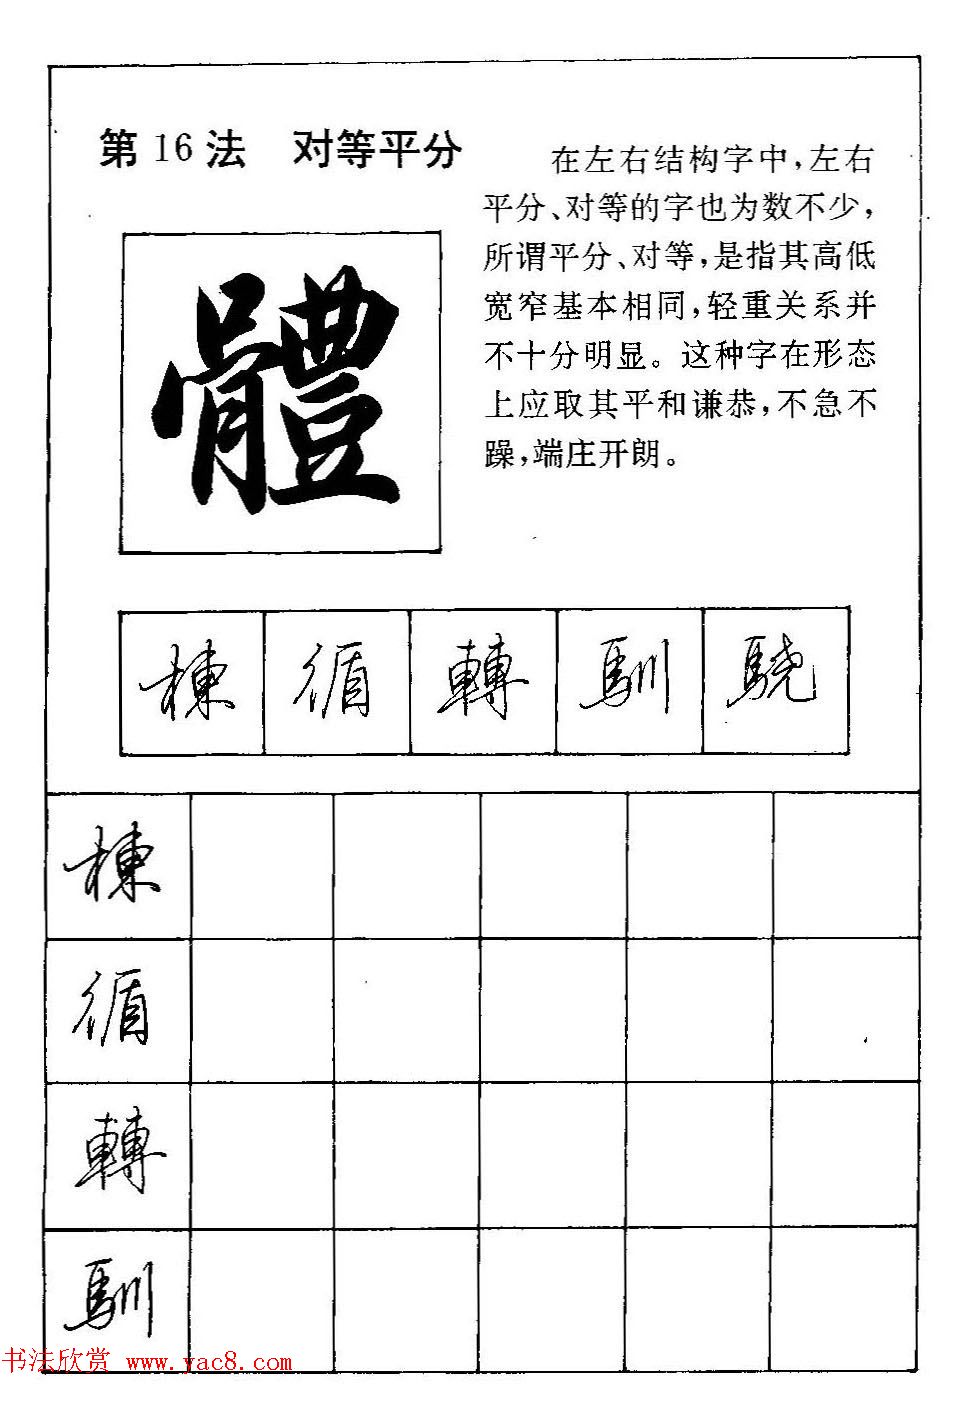 第16法 对等平分
在左右结构字中，左右
平分、对等的字也为数不少，
所谓平分、对等，是指其高低
宽窄基本相同，轻重关系并
不十分明显。这种字在形态
上应取其平和谦恭，不急不
躁，端庄开朗。
體
棟 循 轉 馴 驍
棟
循
轉
馴
书法欣赏 www.yac8.com